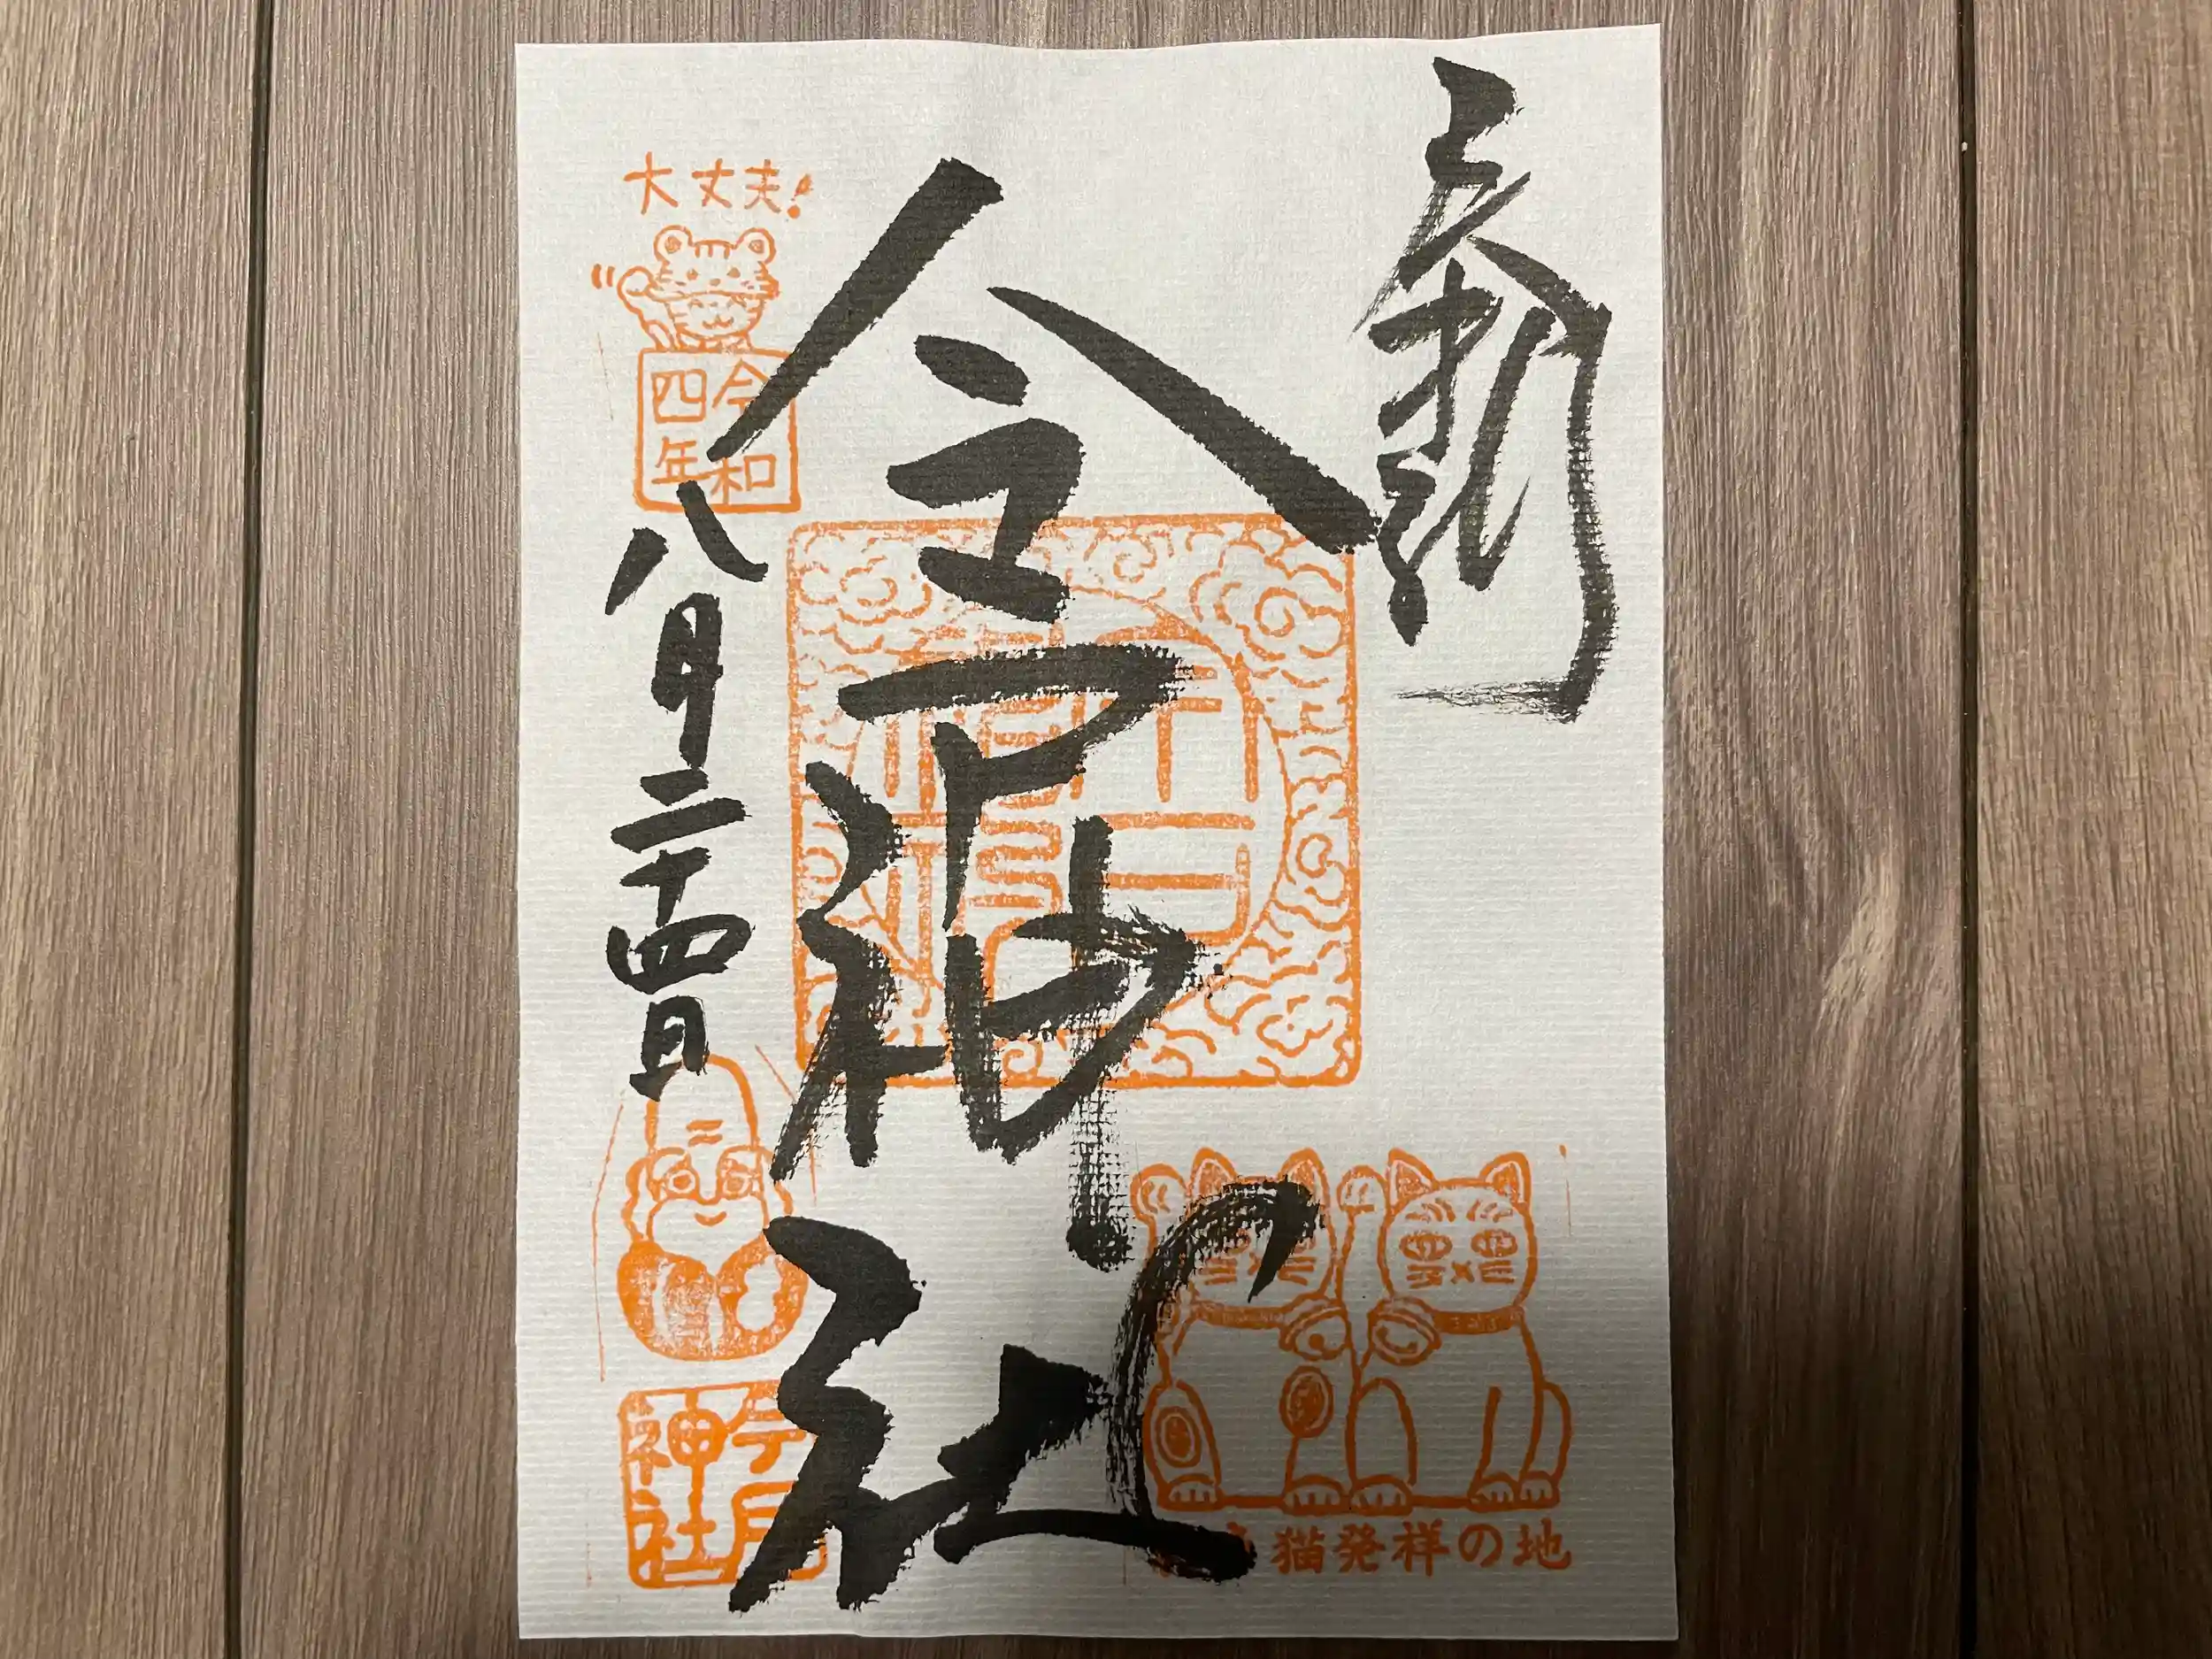 今戸神社
大丈夫!
令和
四年
八月二十四日
今戸
神社
猫発祥の地